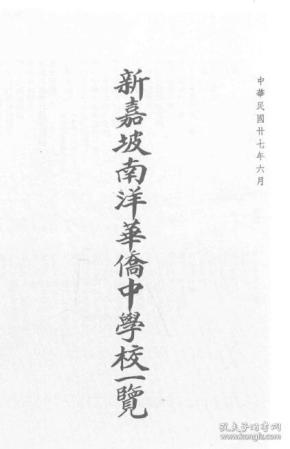 中華民國廿七年六月
新嘉坡南洋華僑中學校一覽
孔夫子旧书网
kongfz.com